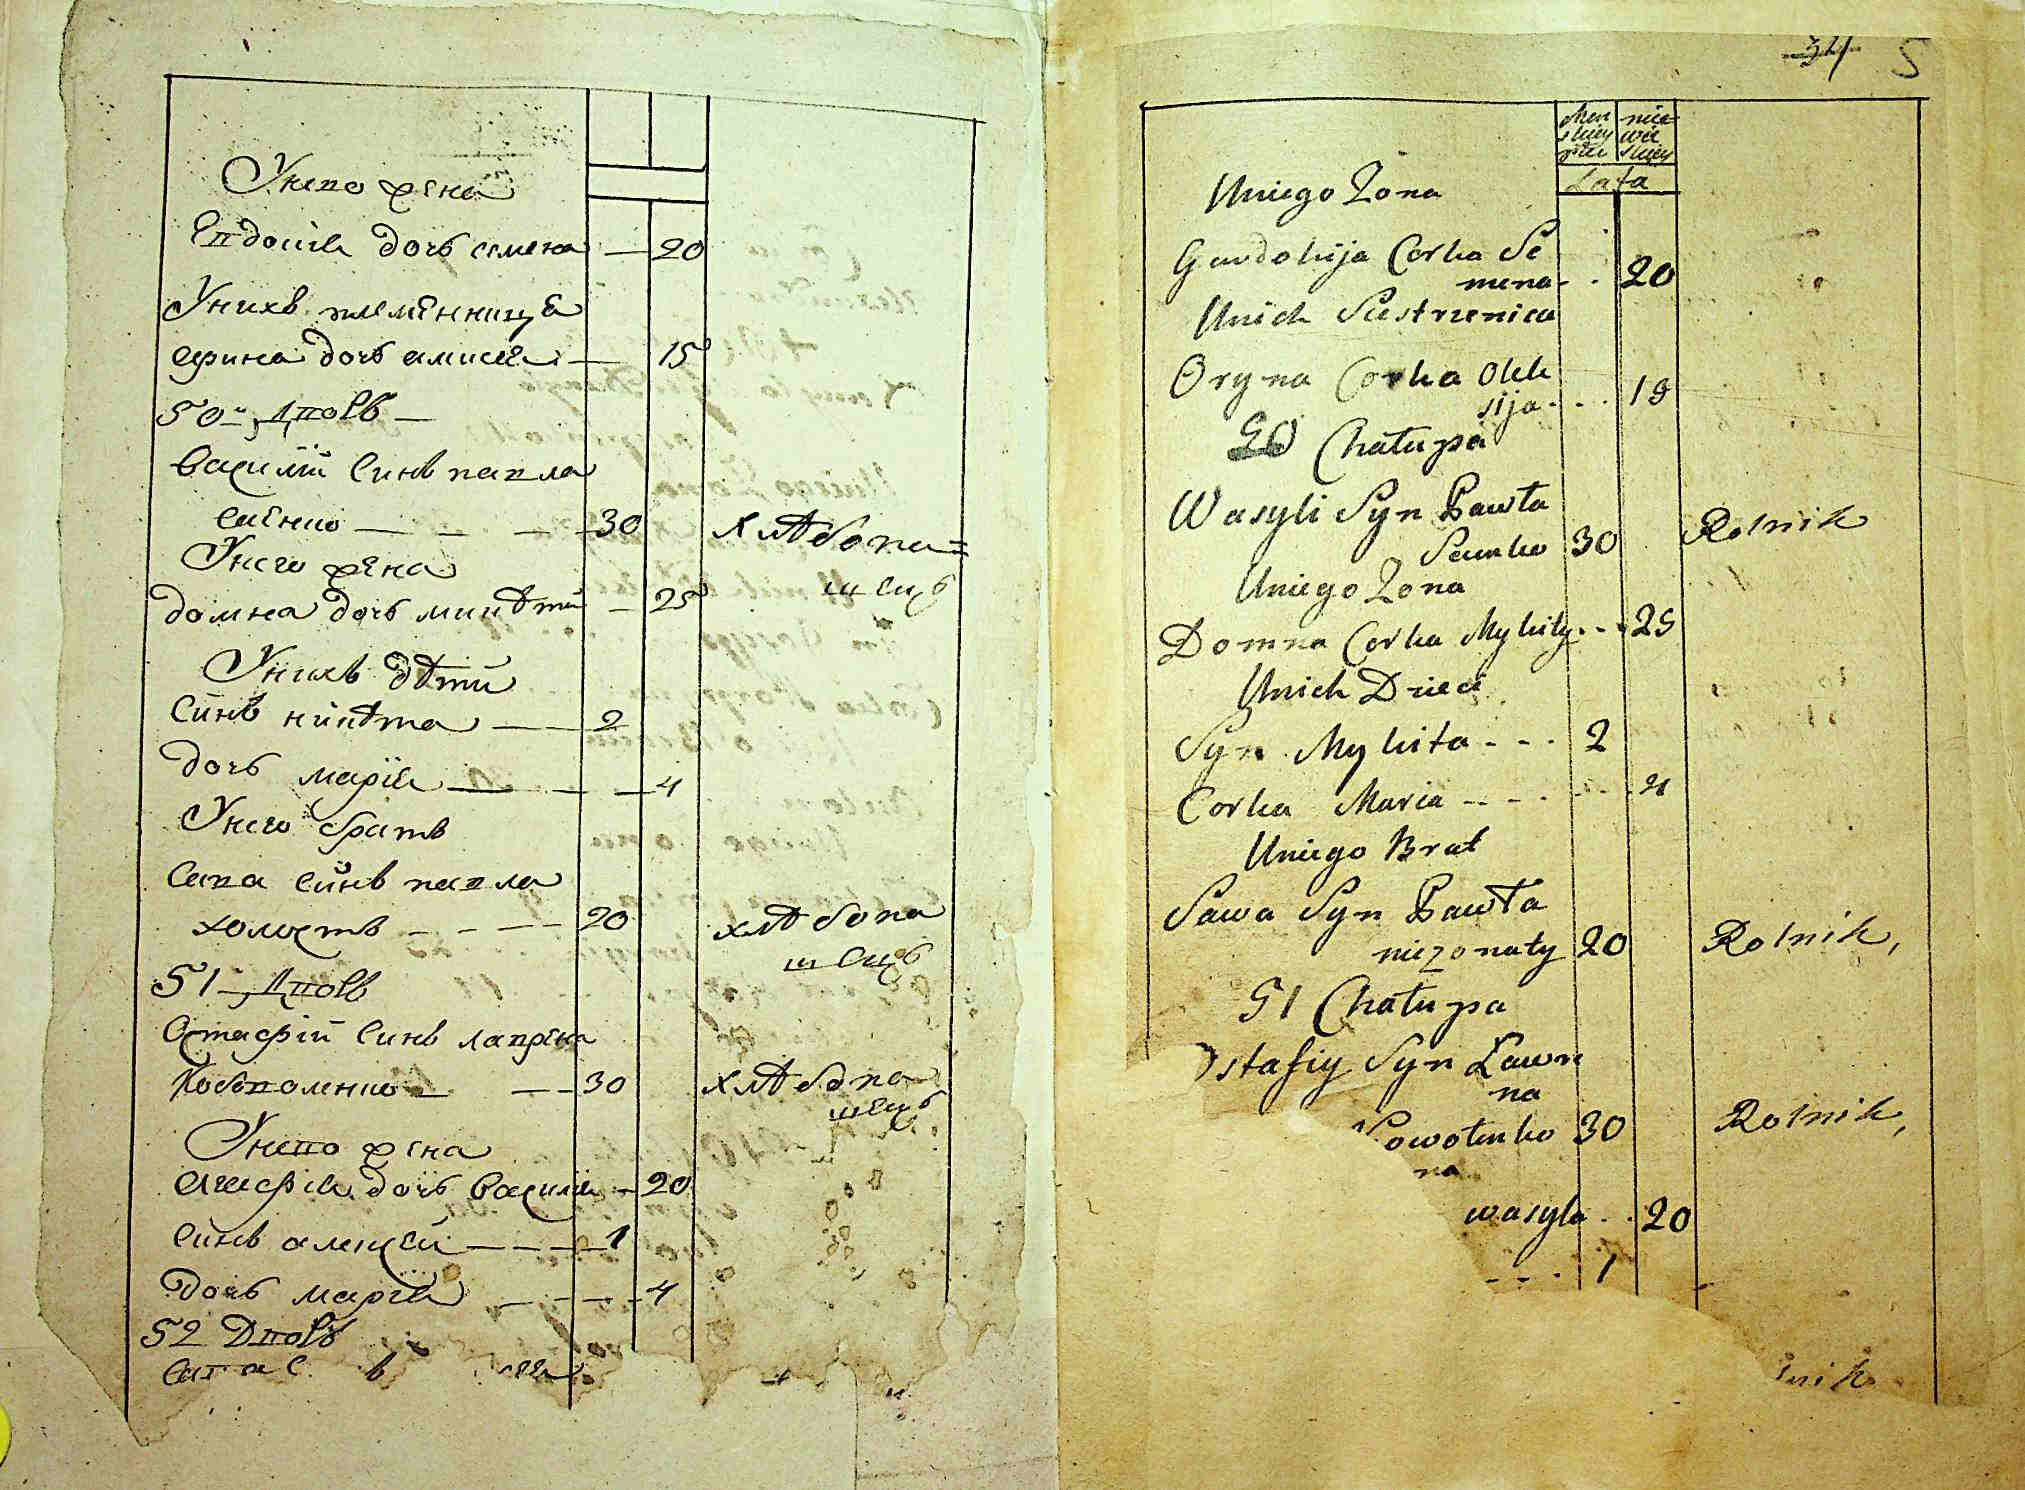 Унево жена
Евдокия дочь семена — 20
Унихъ племенница
арина дочь аликсея — 15
50й дворъ —
василий синъ павла
саенко — — — 30 хлѣбопа=
шецъ
Унего жена
домна дочь микѣти — 25
Унихъ дѣти
Синъ никѣта — 2
дочь мария — — 4
Унего братъ
Сава синъ павла
холостъ - - - 20 хлѣбопа
шецъ
51 дворъ
Остафий синъ лаврена
— 30 хлѣбопа
шецъ
Унево жена
агафия дочь василия — 20
синъ алексей — — — 1
дочь мария — — — 4
52 Дворъ
34 5
Men skiey płci nie wie skiey
Lata
Uniego Zona
Gawdokija Corka Se
mena - - 20
Unich Siestrzenica
Oryna Corka Olek
sija - - - 19
50 Chałupa
Wasyli Syn Pawła
Saenko 30 Rolnik
Uniego Zona
Domna Corka Mykity - - 25
Unich Dzieci
Syn Mykita - - - 2
Corka Maria - - - - - - 4
Uniego Brat
Sawa Syn Pawła
niezonaty 20 Rolnik,
51 Chałupa
Ostafiy Syn Ławre
na
30 Rolnik,
na
wasyla - - 20
- - - 1
lnik